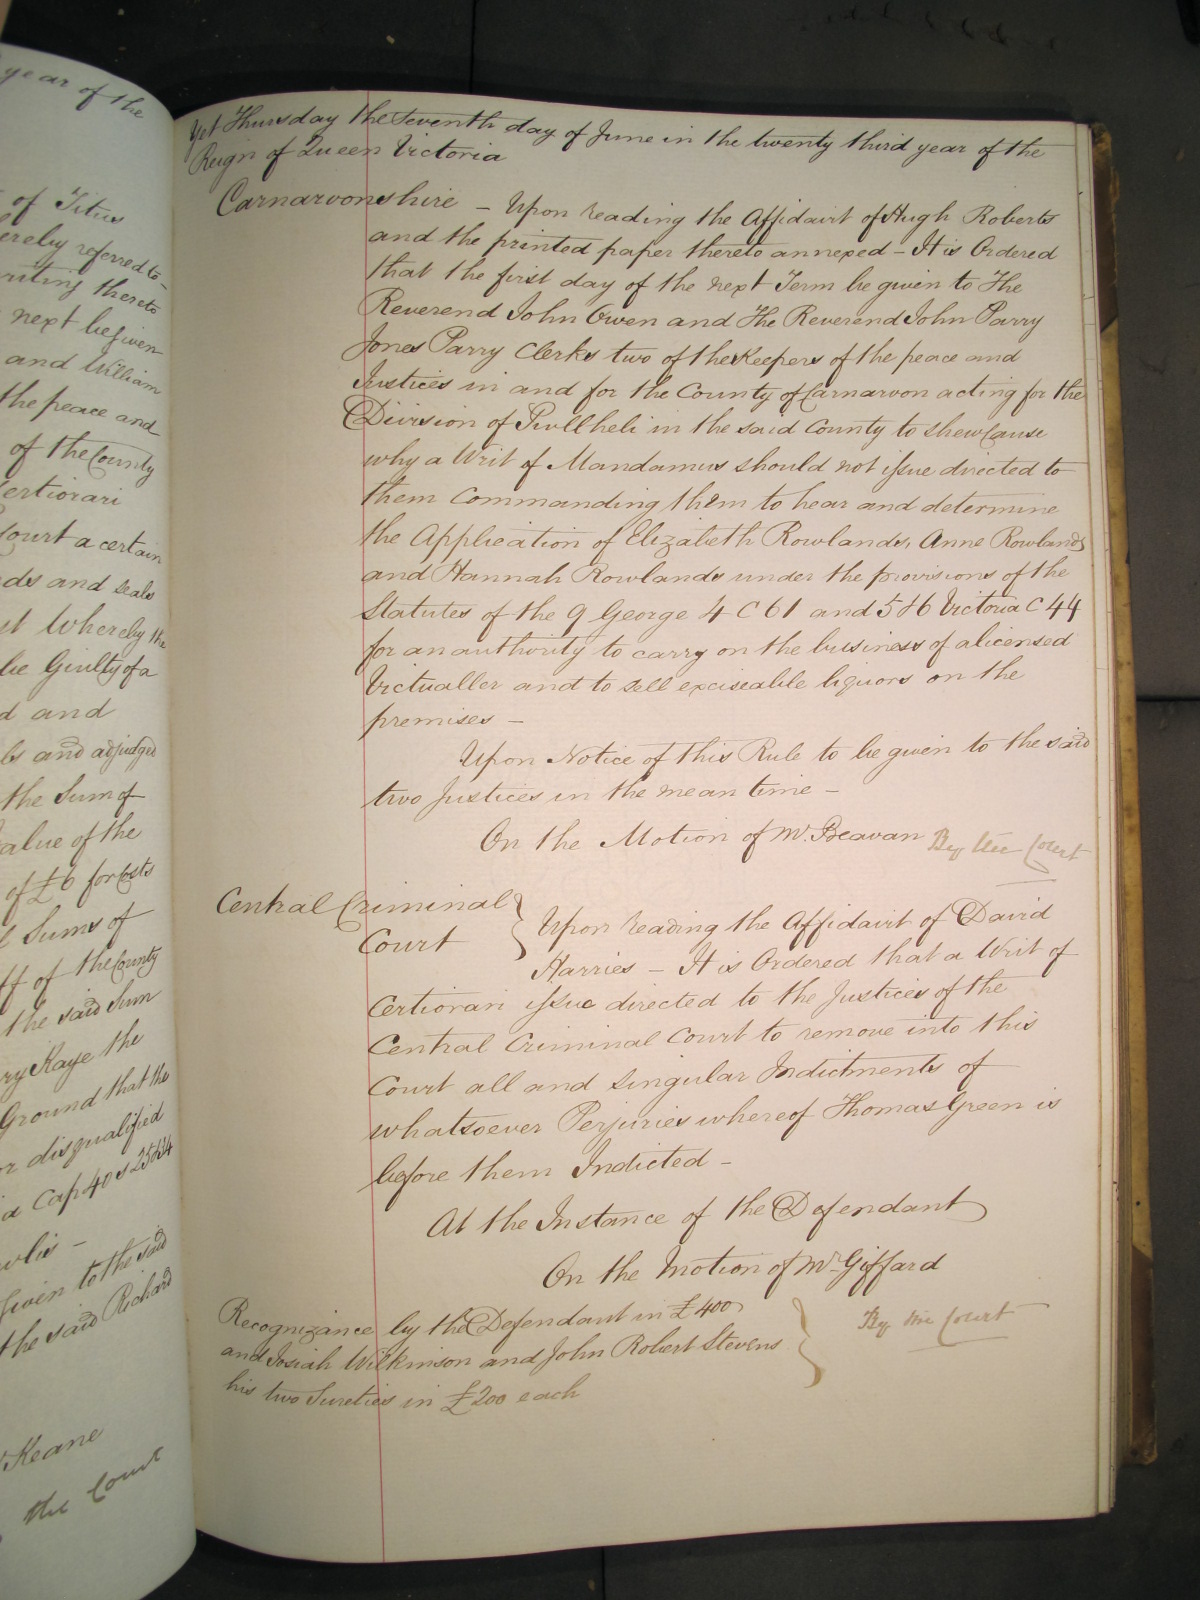 year of the
of Titus
hereby referred to -
writing thereto
next be given
and William
the peace and
of the County
Certiorari
Court a certain
and seals
whereby the
be Guilty of a
and
and adjudged
the Sum of
value of the
of £6 for Costs
Sums of
of the County
the said Sum
Kaye the
Ground that the
or disqualified
Cap 40 s 25 & 34
given to the said
the said Richard
Keane
the Court
Yet Thursday the Seventh day of June in the twenty third year of the
Reign of Queen Victoria
Carnarvonshire - Upon reading the Affidavit of Hugh Roberts
and the printed paper thereto annexed - It is Ordered
that the first day of the next Term be given to The
Reverend John Owen and The Reverend John Parry
Jones Parry Clerks two of the Keepers of the peace and
Justices in and for the County of Carnarvon acting for the
Division of Pwllheli in the said County to shew Cause
why a Writ of Mandamus should not issue directed to
them Commanding them to hear and determine
the Application of Elizabeth Rowlands, Anne Rowlands
and Hannah Rowlands under the provisions of the
Statutes of the 9 George 4 C 61 and 5 & 6 Victoria C 44
for an authority to carry on the bussiness of a licensed
Victualler and to sell exciseable liquors on the
premises -
Upon Notice of this Rule to be given to the said
two Justices in the mean time -
On the Motion of Mr. Beavan By the Court
Central Criminal
Court } Upon reading the Affidavit of David
Harries - It is Ordered that a Writ of
Certiorari issue directed to the Justices of the
Central Criminal Court to remove into this
Court all and singular Indictments of
whatsoever Perjuries whereof Thomas Green is
before them Indicted -
At the Instance of the Defendant
On the Motion of Mr. Giffard
Recognizance by the Defendant in £400
and Josiah Wilkinson and John Robert Stevens } By the Court
his two Sureties in £200 each